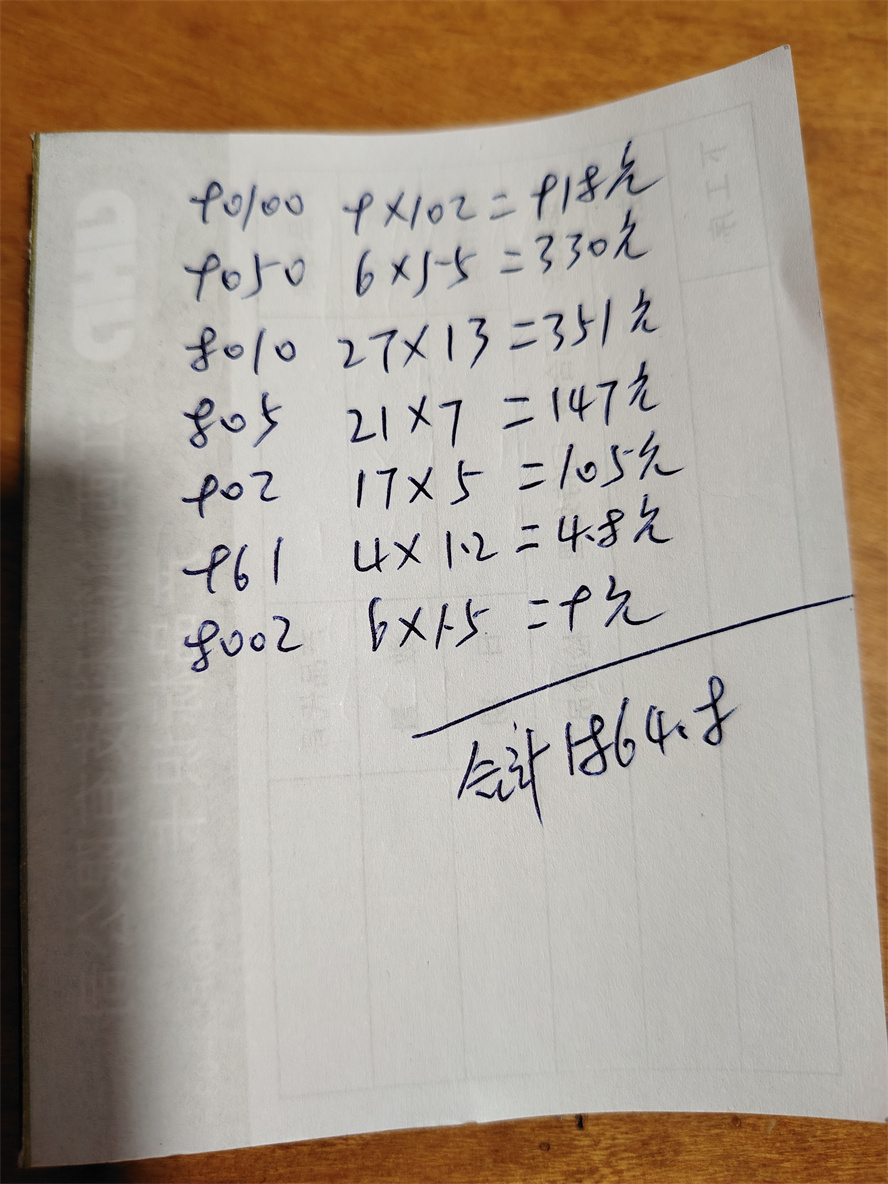 90100 9×102=918元
9050 6×55=330元
8010 27×13=351元
805 21×7=147元
902 17×5=105元
961 4×1.2=4.8元
8002 6×1.5=9元
合计1864.8